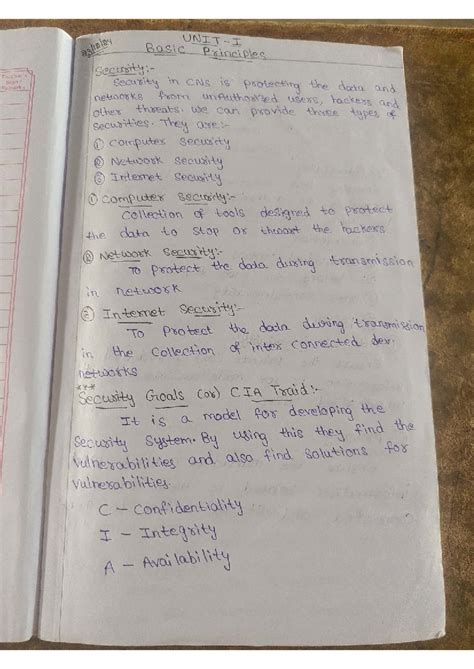 UNIT-I
Basic Principles
Security:-
Security in CNS is protecting the data and
networks from unauthorized users, hackers and
other threats. we can provide three types of
securities. They are:-
① Computer security
② Network Security
③ Internet Security
① Computer Security:-
Collection of tools designed to protect
the data to stop or thwart the hackers
② Network Security:-
To protect the data during transmission
in network
③ Internet Security:-
To Protect the data during transmission
in the collection of inter connected
networks
***
Security Goals (or) CIA Traid:-
It is a model for developing the
Security System. By using this they find the
vulnerabilities and also find solutions for
vulnerabilities.
C - Confidentiality
I - Integrity
A - Availability